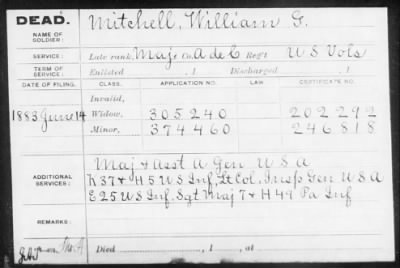 DEAD.
NAME OF SOLDIER:
Mitchell, William G.
SERVICE:
Late rank, Maj, Co. A de C, Reg't U S Vols
TERM OF SERVICE:
Enlisted , 1 Discharged , 1
DATE OF FILING. CLASS. APPLICATION NO. LAW. CERTIFICATE NO.
Invalid,
1883 June 14 Widow, 305240 202292
Minor, 374460 246818
ADDITIONAL SERVICES:
Maj & Asst A Gen U S A
K 37 & H 5 U S Inf, Lt Col, Insp Gen U S A
E 25 U S Inf, Sgt Maj 7 & H 49 Pa Inf
REMARKS:
Died , 1 , at